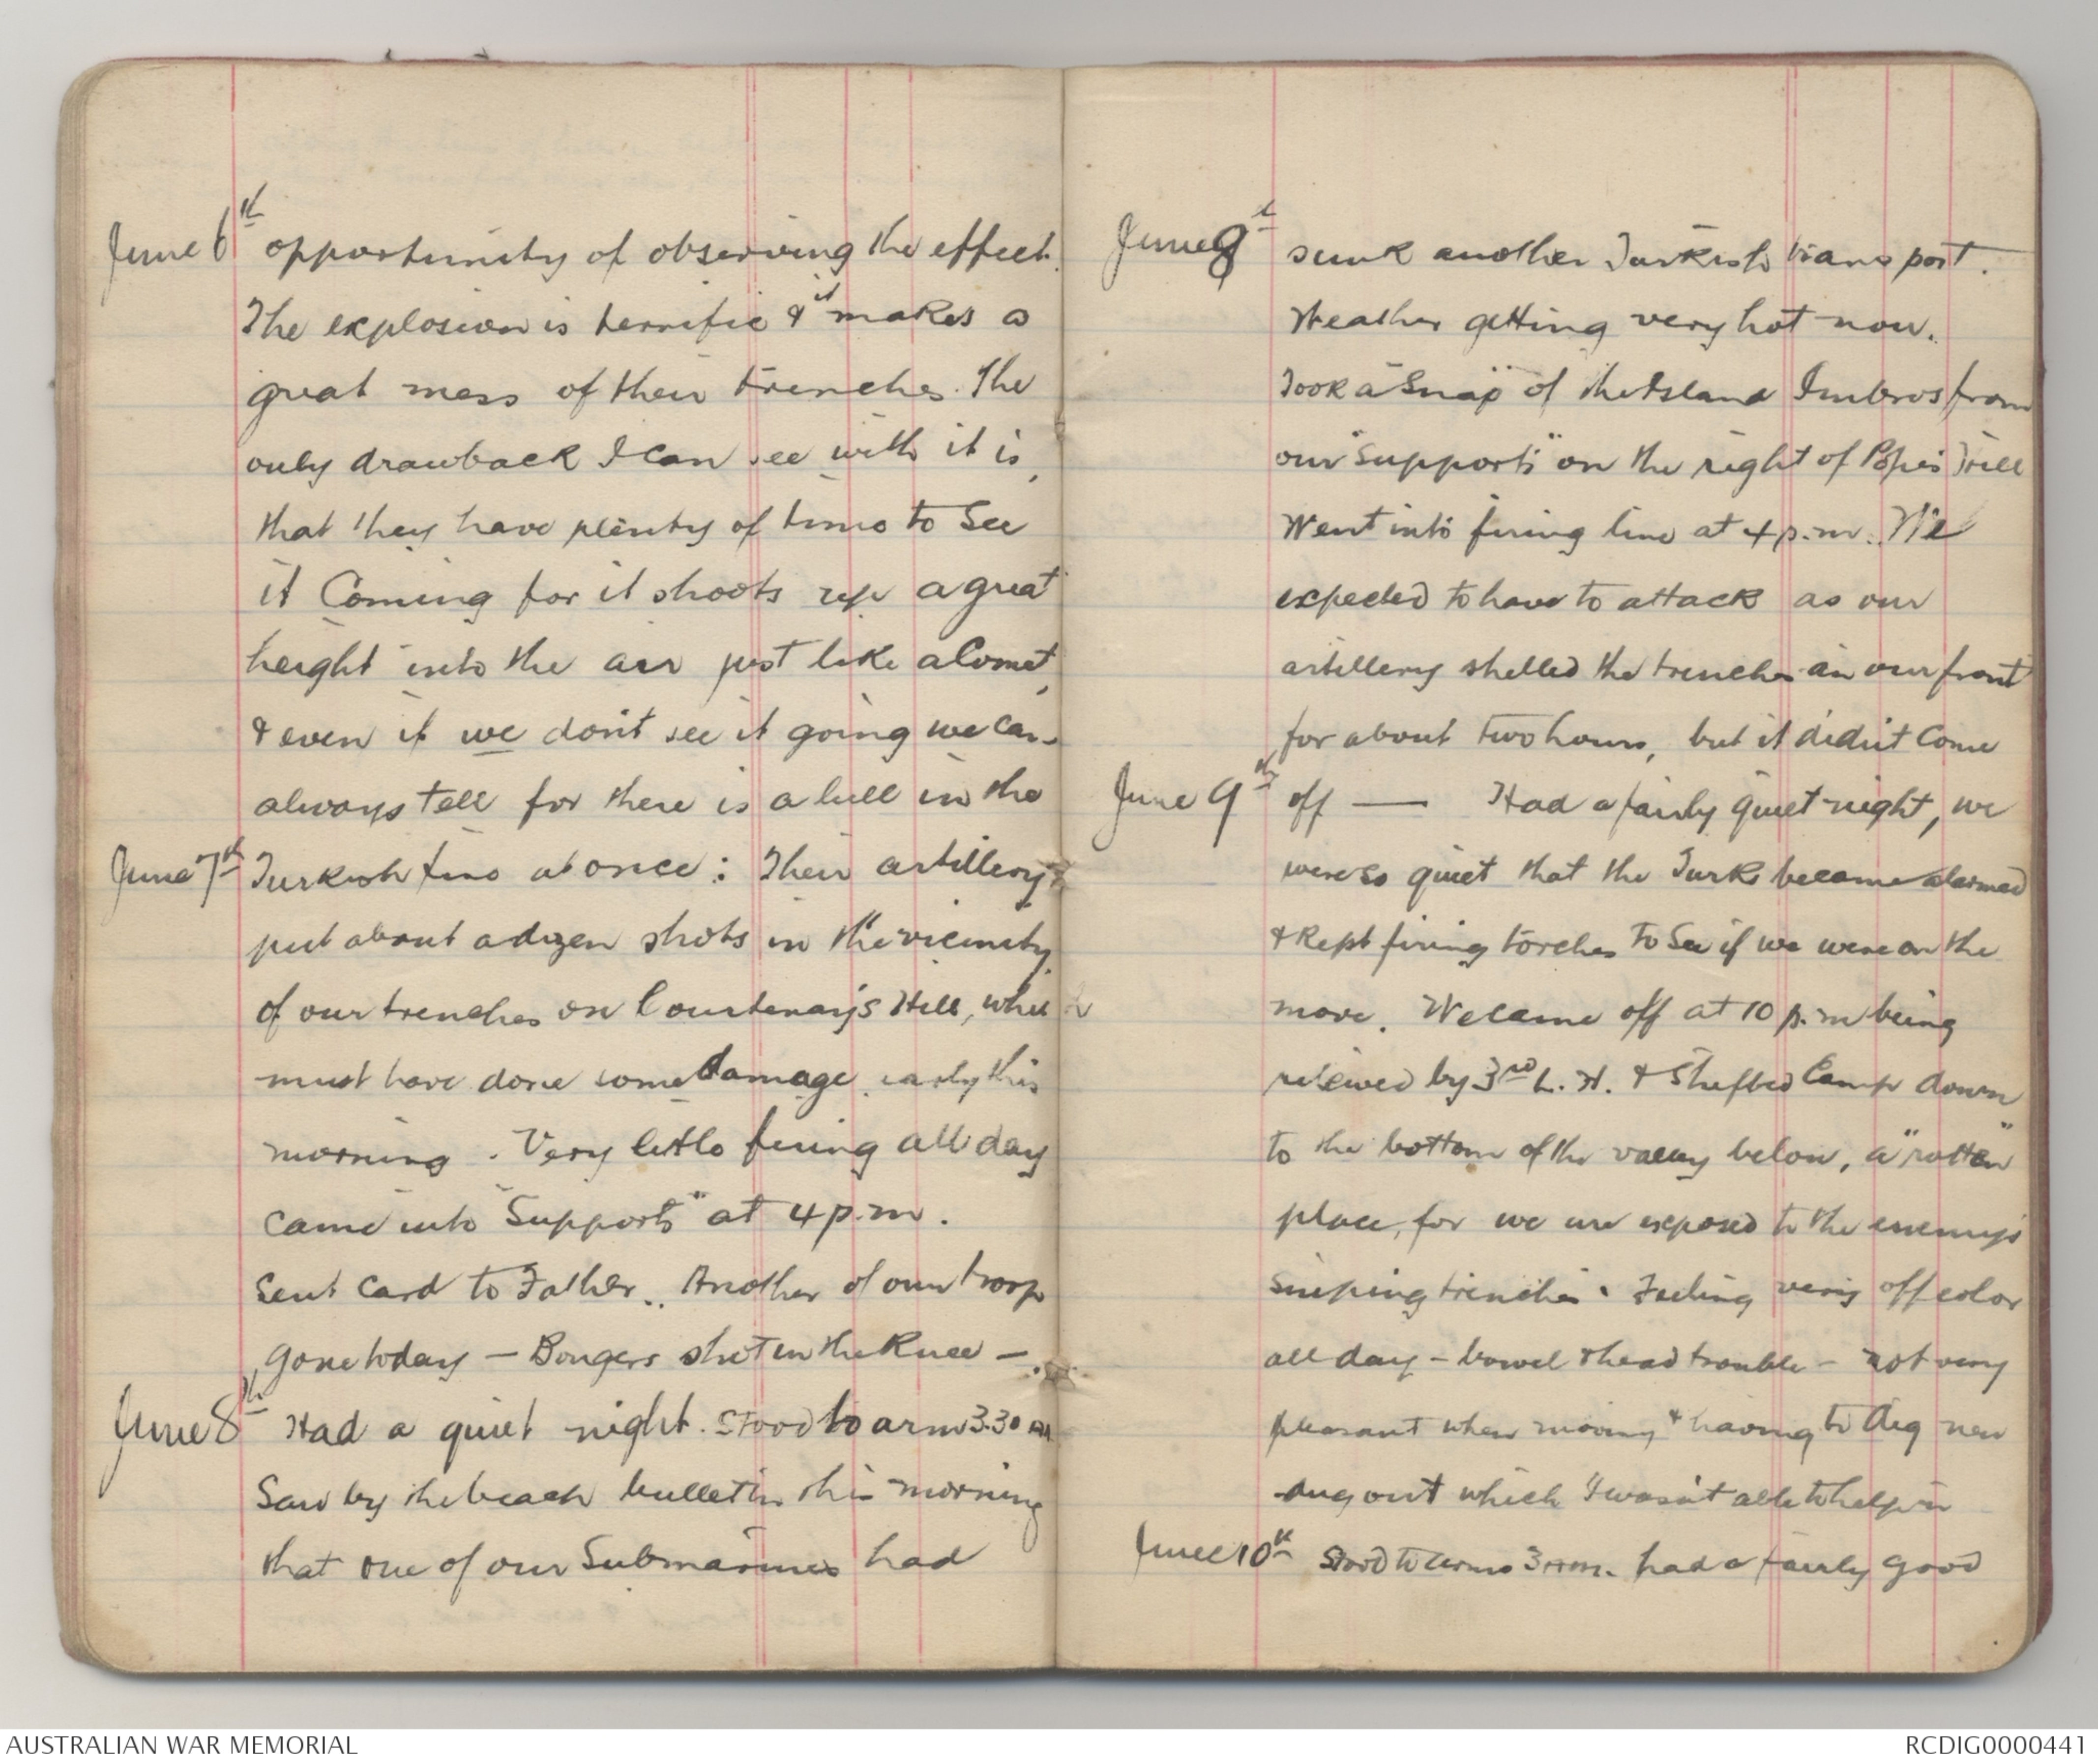 June 6th opportunity of observing the effect.
The explosion is terrific & it makes a
great mess of their trenches. The
only drawback I can see with it is,
that they have plenty of time to see
it Coming for it shoots up a great
height into the air just like a Comet,
& even if we don't see it going we can
always tell for there is a lull in the
June 7th Turkish fire at once: Their artillery
put about a dozen shots in the vicinity
of our trenches on Courtenay's Hill, which
must have done some damage early this
morning. Very little firing all day
came into "Supports" at 4 p.m.
Sent Card to Father.. Another of our troop
gone today - Bongers shot in the Knee -
June 8th Had a quiet night. Stood to arm 3.30 AM
Saw by the beach bulletin this morning
that one of our Submarines had
June 8th sunk another Turkish transport.
Weather getting very hot now.
Took a "Snap" of the Island Imbros from
our "Supports" on the right of Pope's Hill
Went into firing line at 4 p.m. We
expected to have to attack as our
artillery shelled the trenches in our front
for about two hours, but it didn't Come
June 9th off — Had a fairly quiet night, we
were so quiet that the Turks became alarmed
& Kept firing torches to See if we were on the
move. We came off at 10 p.m being
relieved by 3rd L. H. & Shifted Camp down
to the bottom of the valley below, a "rotten"
place, for we are exposed to the enemy's
sniping trenches. Feeling very off color
all day - bowel & head trouble - not very
pleasant when moving & having to dig new
dug out which I wasn't able to help in
June 10th Stood to arms 3 AM. had a fairly good
AUSTRALIAN WAR MEMORIAL
RCDIG0000441